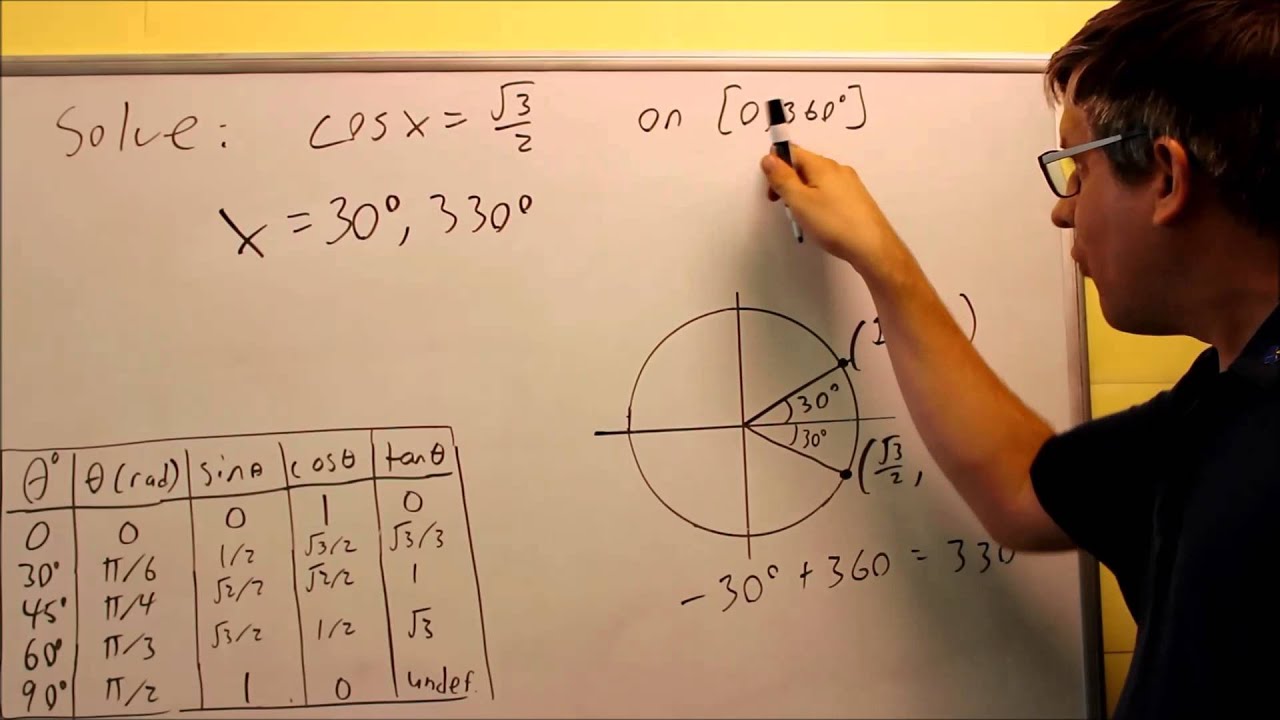 Solve: cosx = √3/2 on [0, 360°]
x = 30°, 330°
(
)
30°
30°
(√3/2,
-30° + 360 = 330
θ° θ(rad) sinθ cosθ tanθ
0 0 0 1 0
30° π/6 1/2 √3/2 √3/3
45° π/4 √2/2 √2/2 1
60° π/3 √3/2 1/2 √3
90° π/2 1 0 undef.